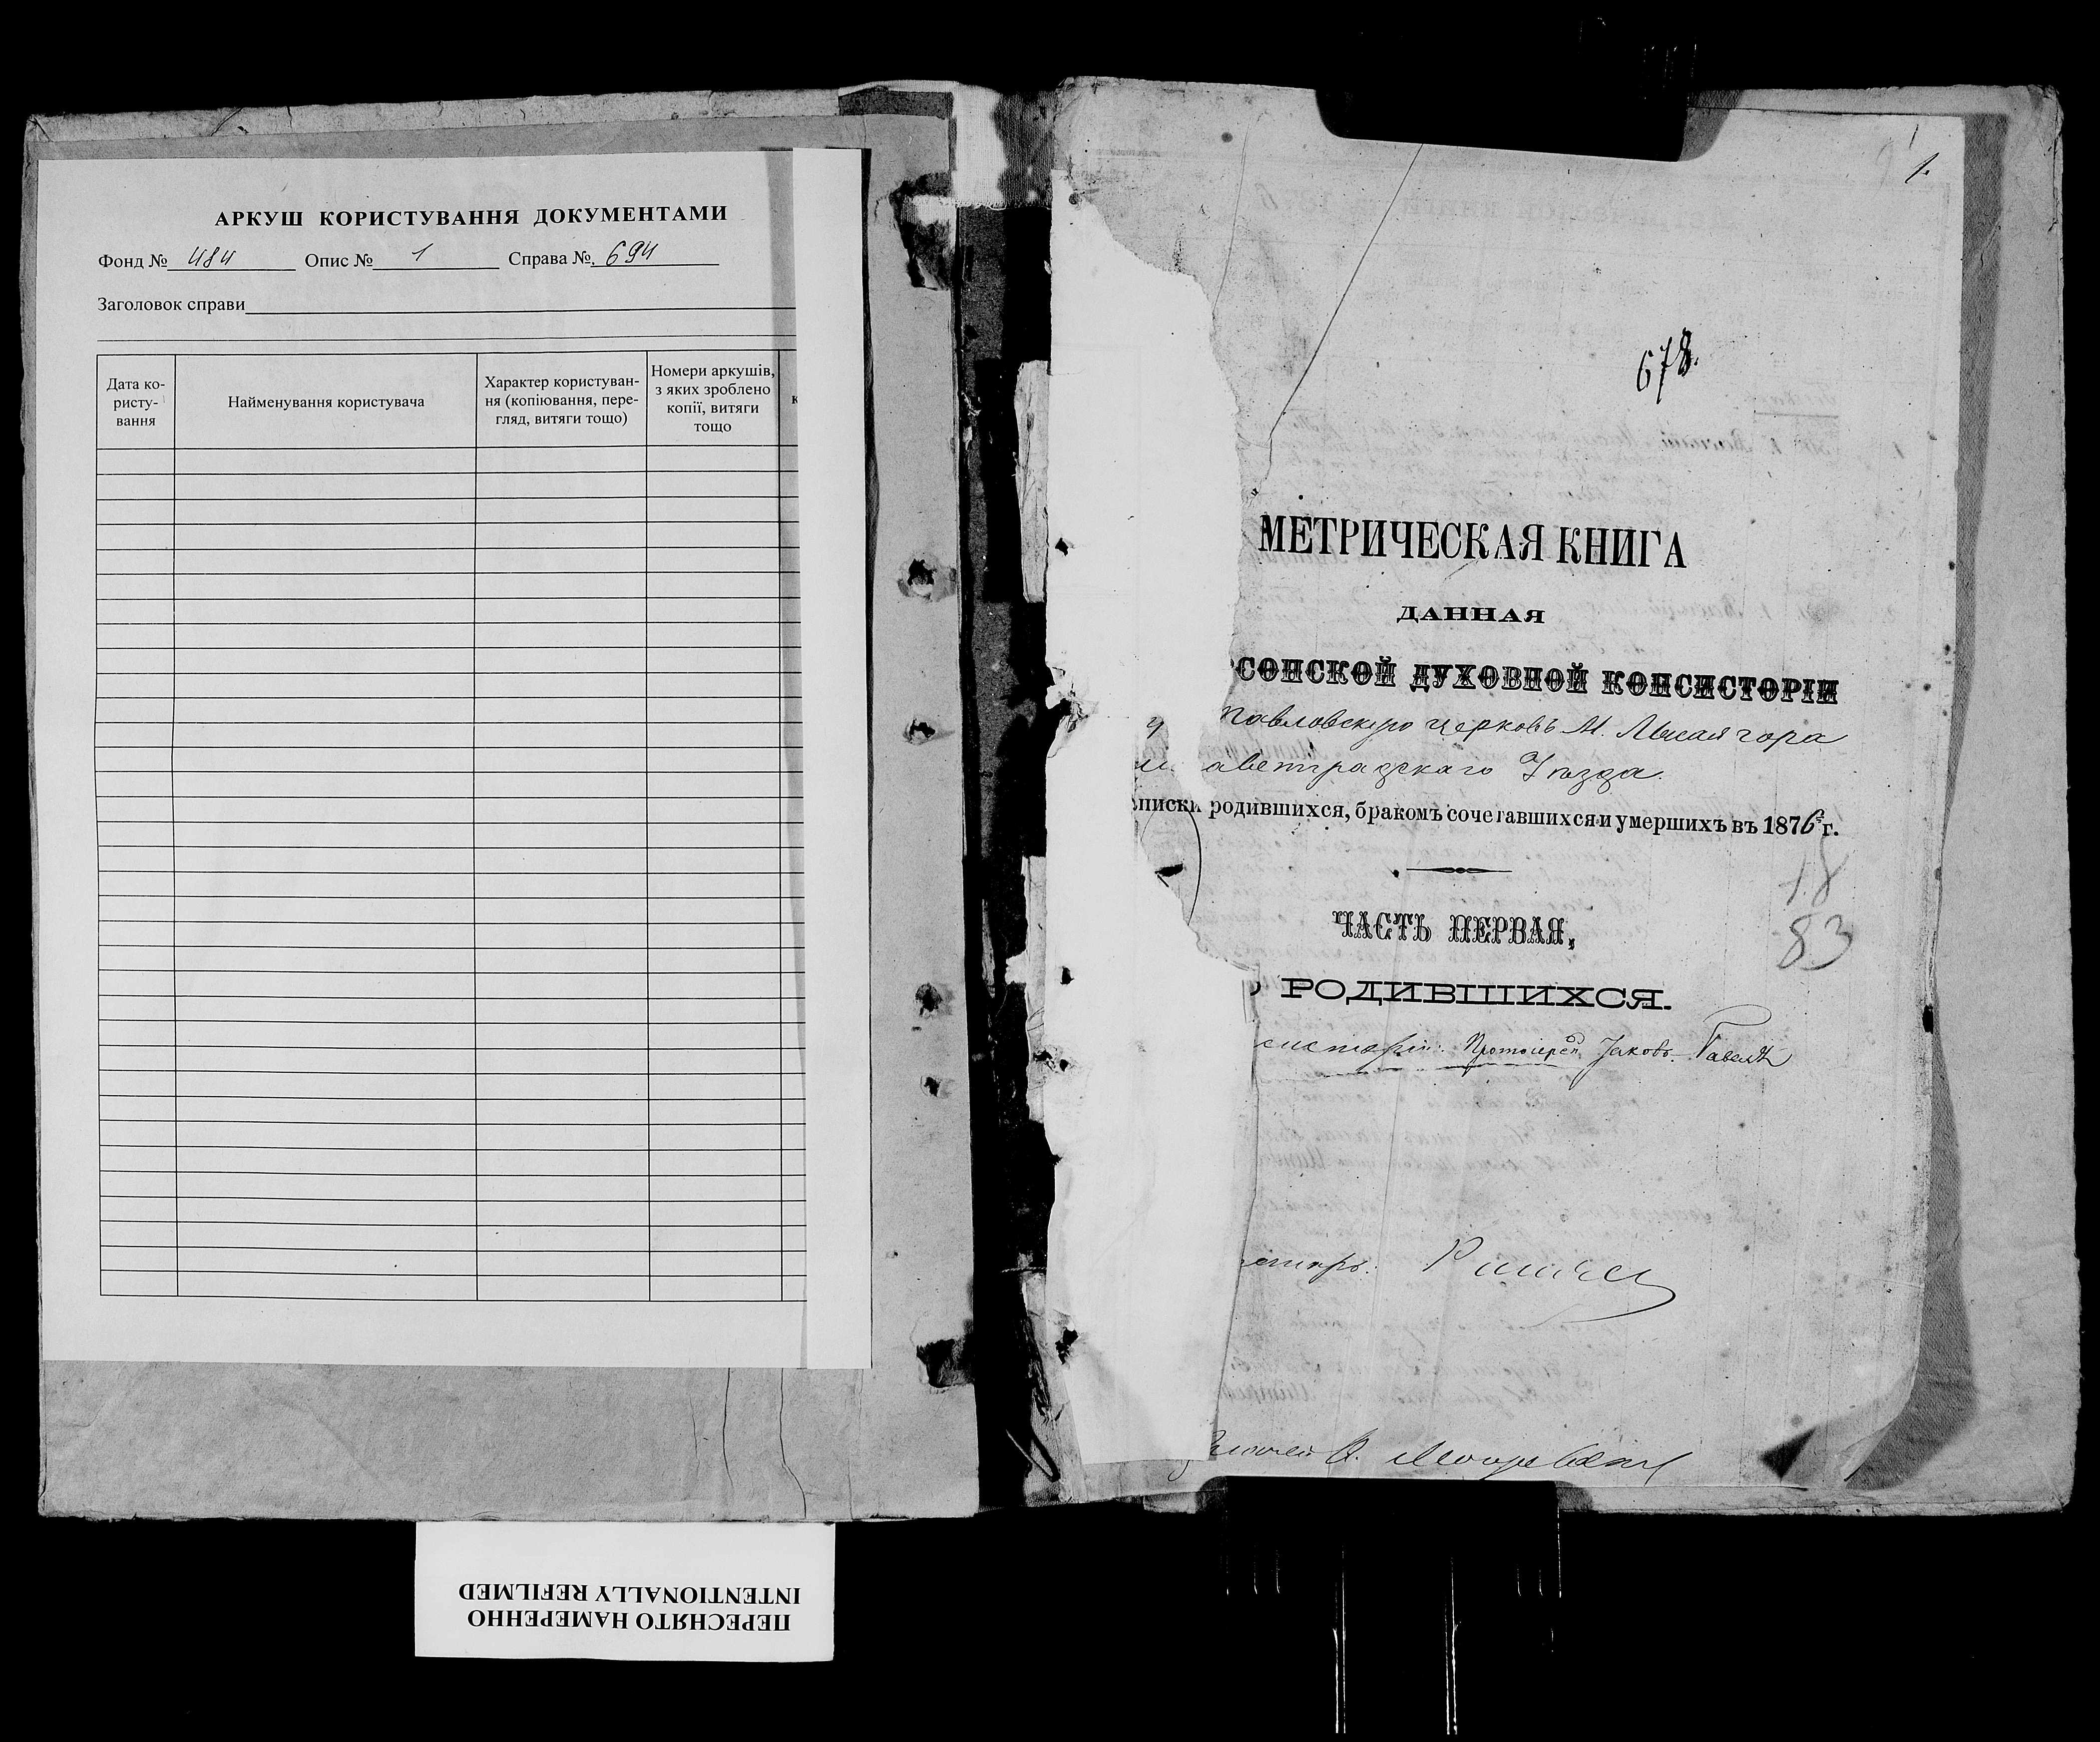 АРКУШ КОРИСТУВАННЯ ДОКУМЕНТАМИ
Фонд № 484 Опис № 1 Справа № 694
Заголовок справи
Дата ко-
ристу-
вання
Найменування користувача
Характер користуван-
ня (копіювання, пере-
гляд, витяги тощо)
Номери аркушів,
з яких зроблено
копії, витяги
тощо
к
ПЕРЕСНЯТО НАМЕРЕННО
INTENTIONALLY REFILMED
1.
678.
МЕТРИЧЕСКАЯ КНИГА
ДАННАЯ
СОНСКОЙ ДУХОВНОЙ КОНСИСТОРІИ
павловскую церковь М. Лысая гора
аветградскаго Уѣзда.
писки родившихся, бракомъ сочетавшихся и умершихъ въ 1876 г.
18
83
ЧАСТЬ ПЕРВАЯ,
РОДИВШИХСЯ.
систоріи: Протоіерей Іаковъ